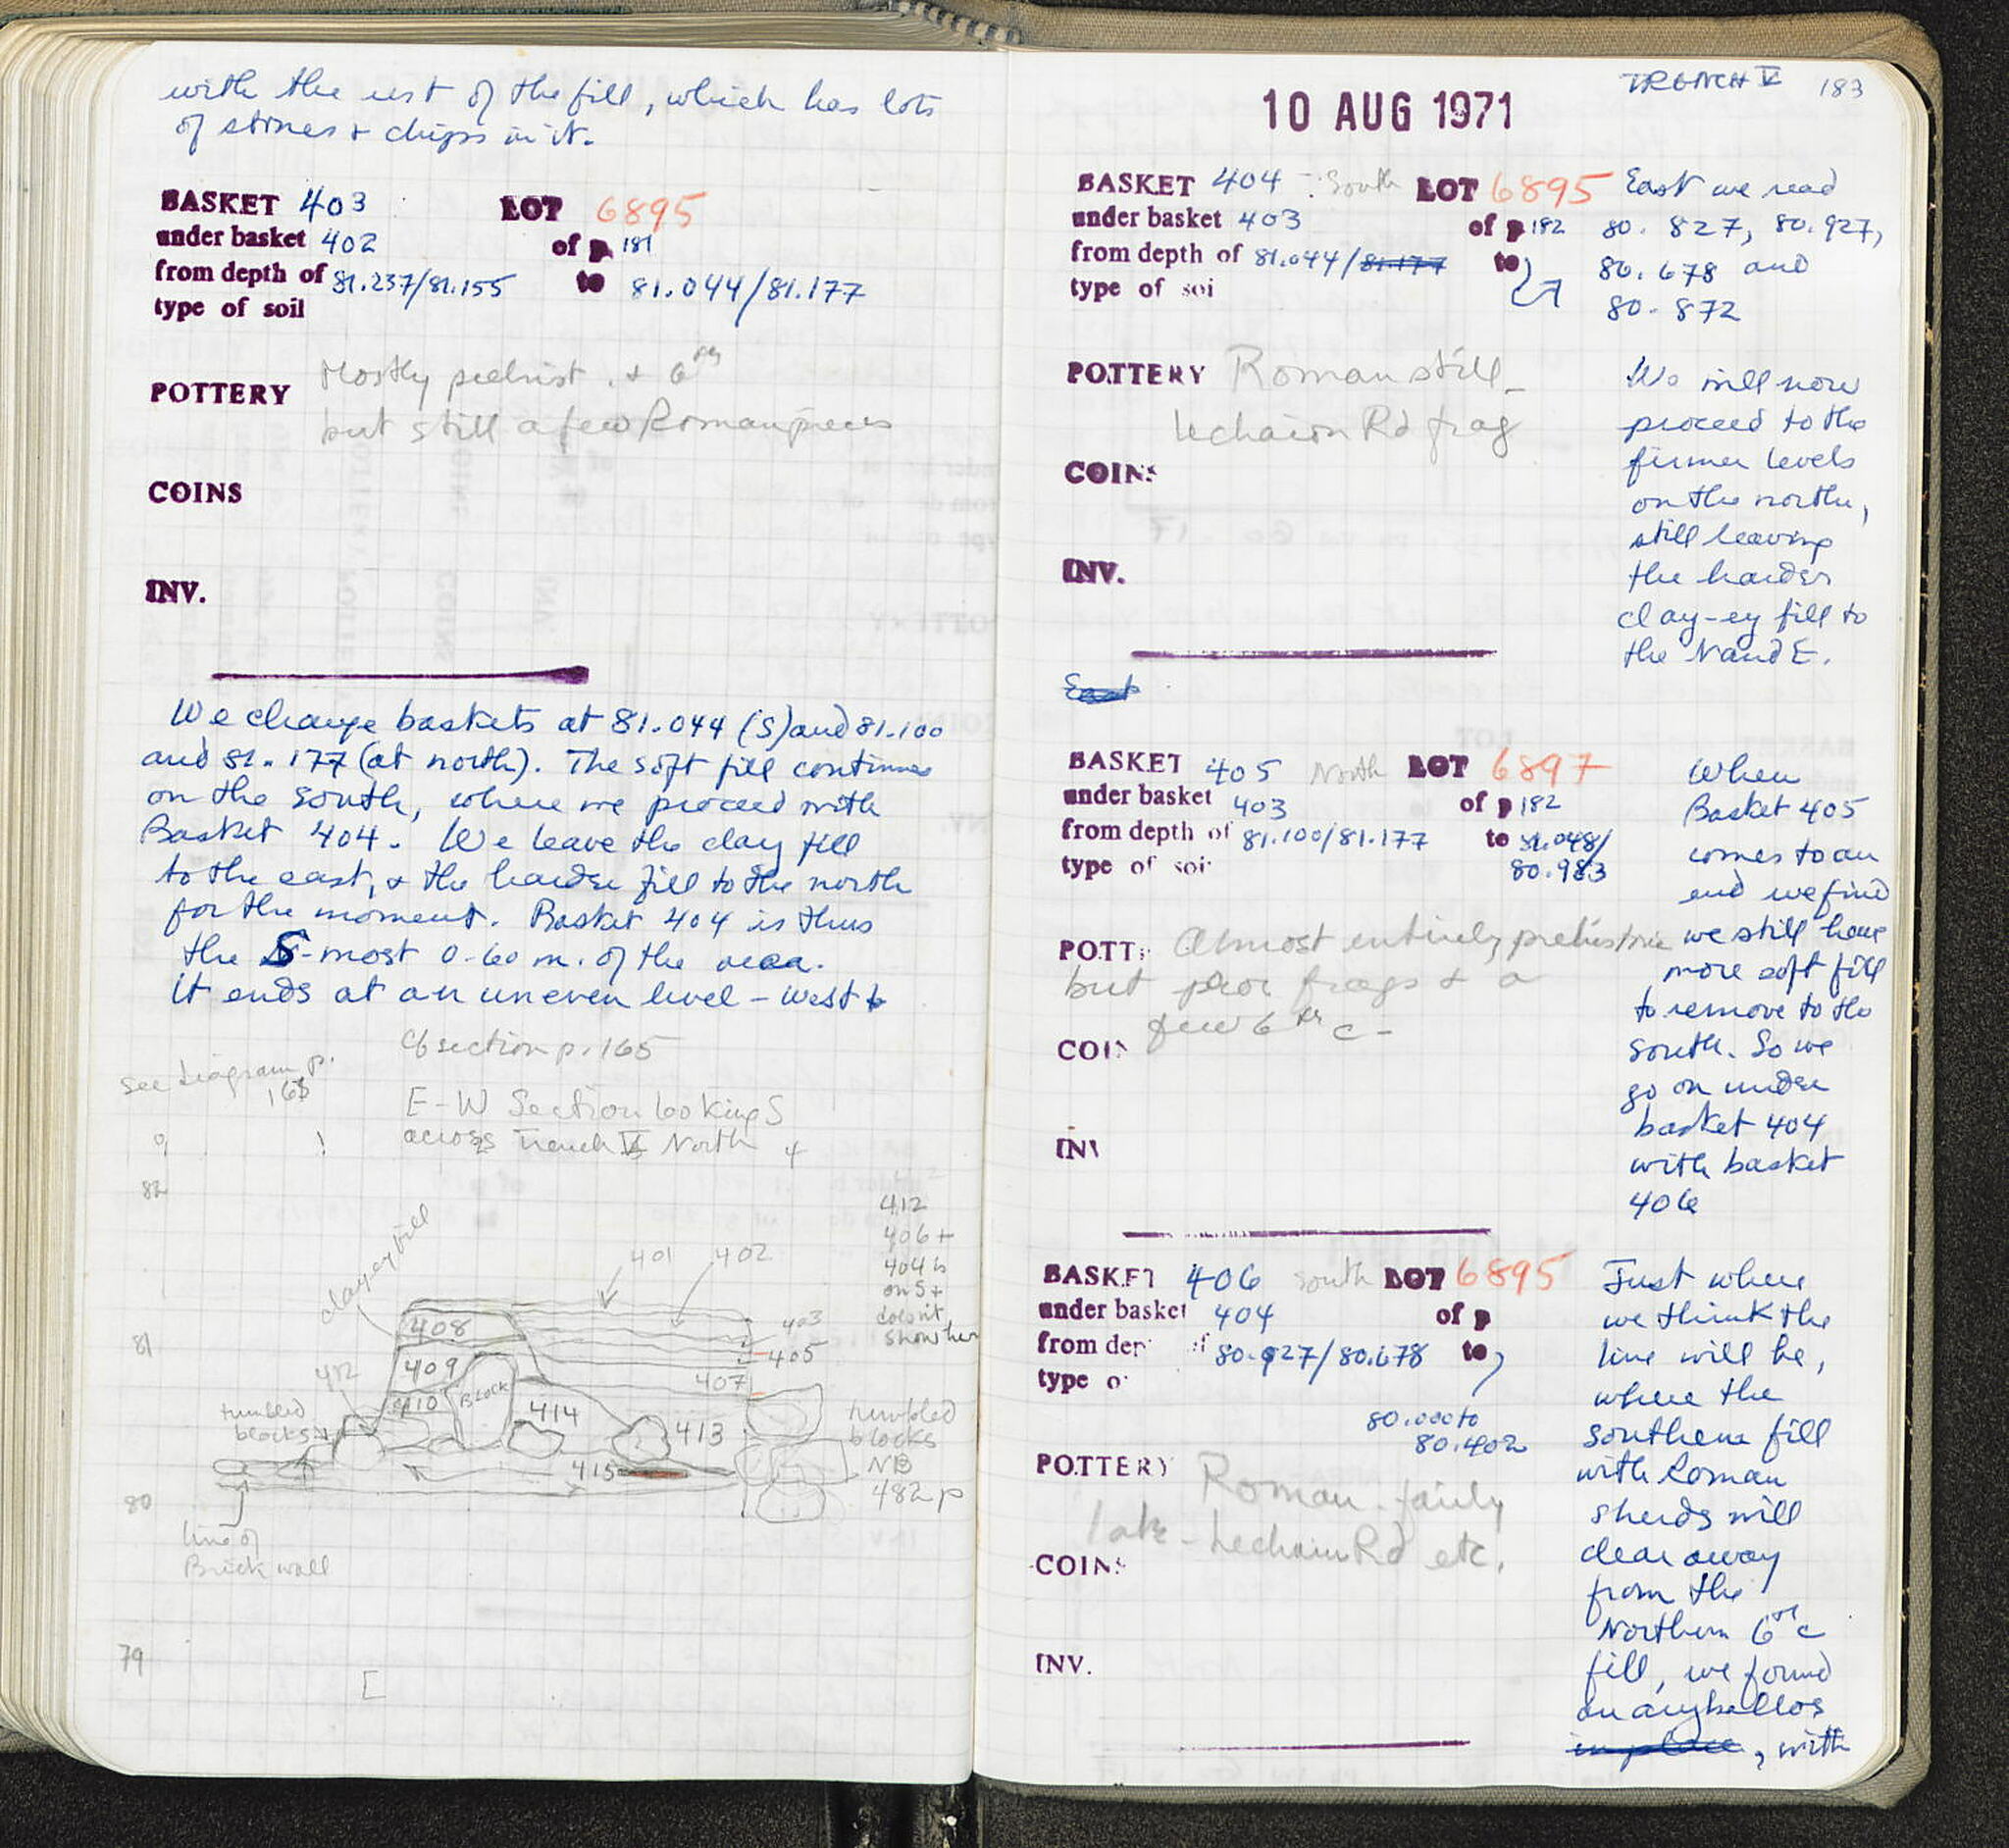 with the rest of the fill, which has lots
of stones + chips in it.
BASKET 403 LOT 6895
under basket 402 of p. 181
from depth of 81.237/81.155 to 81.044/81.177
type of soil
POTTERY Mostly prehist. + 6th
but still a few Roman pieces
COINS
INV.
We change baskets at 81.044 (S) and 81.100
and 81.177 (at north). The soft fill continues
on the south, where we proceed with
Basket 404. We leave the clay fill
to the east, + the harder fill to the north
for the moment. Basket 404 is thus
the S-most 0.60 m. of the area.
It ends at an uneven level - West to
cf section p. 165
see diagram p.
165
E-W Section looking S
across Trench V North
82
clayey fill
401 402
412
406 +
404 is
on S +
doesn't
show here
403
405
407
81
408
409
410
412
Block
414
413
415
tumbled
blocks
tumbled
blocks
NB
482 p
80
line of
Brick wall
79
TRENCH V 183
10 AUG 1971
BASKET 404 South LOT 6895
under basket 403 of p 182
from depth of 81.044/81.177 to
type of soi
East we read
80.827, 80.927,
80.678 and
80.872
POTTERY Roman still -
Lechaion Rd frag
COINS
INV.
We will now
proceed to the
firmer levels
on the north,
still leaving
the harder
clay-ey fill to
the N and E.
East
BASKET 405 North LOT 6897
under basket 403 of p 182
from depth of 81.100/81.177 to 81.048/
80.983
type of soi
POTT Almost entirely prehistoric
but poor frags + a
few 6th c -
COI
IN
When
Basket 405
comes to an
end we find
we still have
more soft fill
to remove to the
south. So we
go on under
basket 404
with basket
406
BASKET 406 South LOT 6895
under basket 404 of p
from dep f 80.927/80.678 to
80.000 to
80.402
type o
POTTERY Roman - fairly
late - Lechaion Rd etc.
COINS
INV.
Just where
we think the
line will be,
where the
southern fill
with Roman
sherds will
clear away
from the
Northern 6th c
fill, we found
an aryballos
in place, with